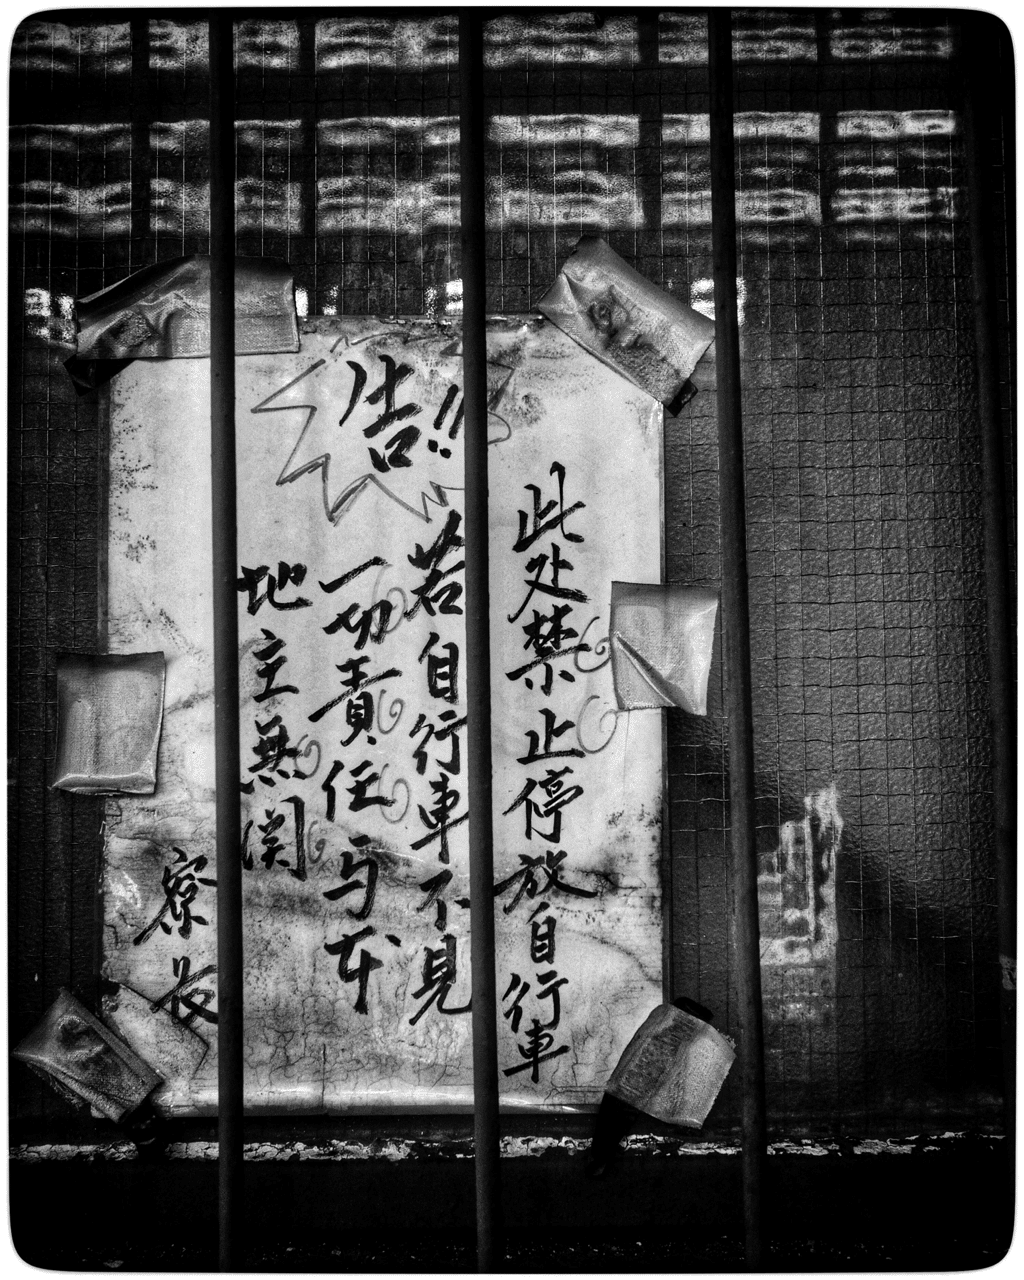 告!!
此处禁止停放自行車
若自行車不見
一切責任与本
地主無関
寮长